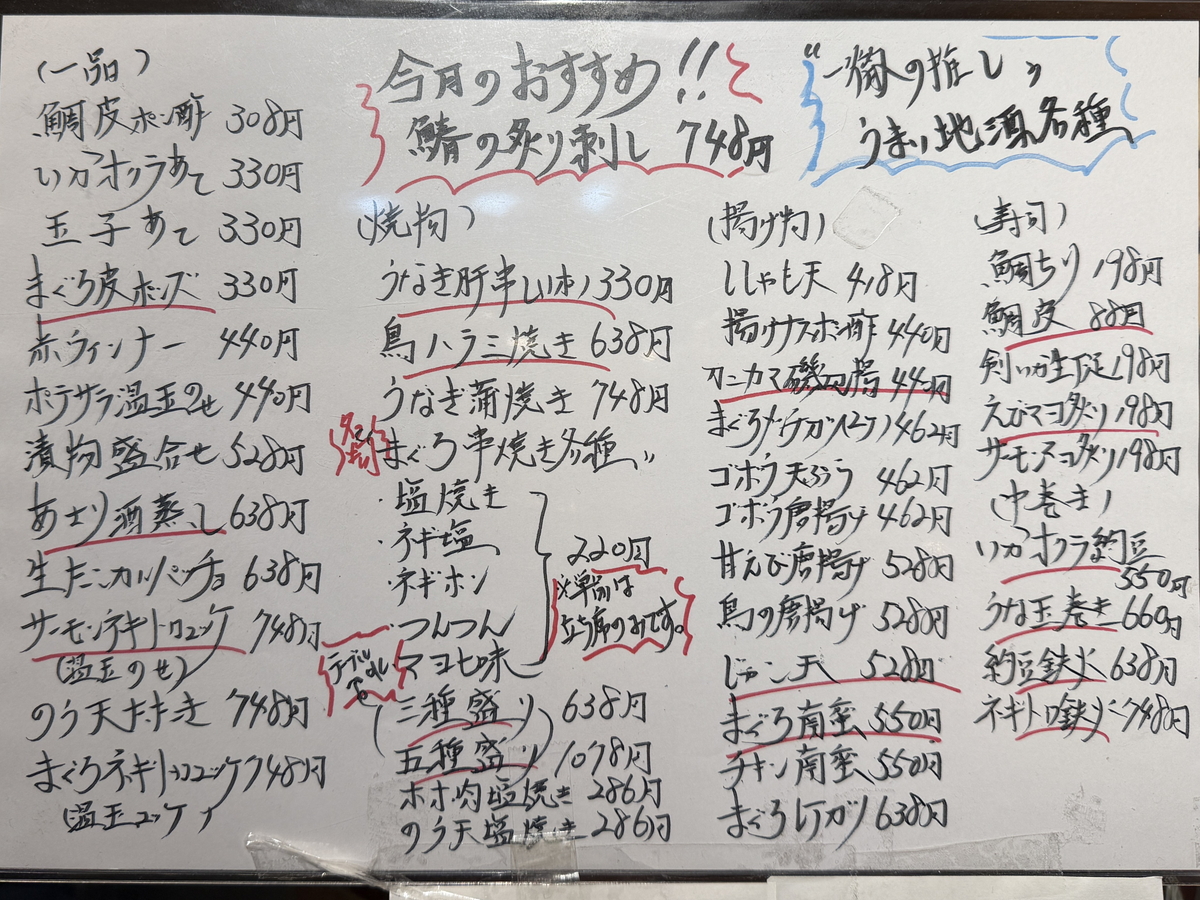 今月のおすすめ!!
鰆の炙り刺し 748円
うまい地酒各種
(一品)
鯛皮ポン酢 308円
いかオクラあて 330円
玉子あて 330円
まぐろ皮ポンズ 330円
赤ウィンナー 440円
ポテサラ温玉のせ 440円
漬物盛合せ 528円
あさり酒蒸し 638円
生たこカルパッチョ 638円
サーモンネギトロユッケ 748円
(温玉のせ)
のう天たたき 748円
まぐろネギトロユッケ 748円
(温玉ユッケ)
(焼物)
うなぎ肝串(1本) 330円
鳥ハラミ焼き 638円
うなぎ蒲焼き 748円
まぐろ串焼き各種
・塩焼き
・ネギ塩
・ネギポン
・つんつん
・マヨ七味
220円
※単品は
立ち席のみです。
テーブル
(三種盛り) 638円
五種盛り 1078円
ホホ肉塩焼き 286円
のう天塩焼き 286円
(揚げ物)
ししゃも天 418円
揚げナスポン酢 440円
カニカマ磯辺揚 440円
まぐろメンチカツ(2ケ) 462円
ゴボウ天ぷら 462円
ゴボウ唐揚げ 462円
甘えび唐揚げ 528円
鳥の唐揚げ 528円
じゃこ天 528円
まぐろ南蛮 550円
チキン南蛮 550円
まぐろレアカツ 638円
(寿司)
鯛ちり 198円
鯛皮 88円
剣いか生下足 198円
えびマヨ炙り 198円
サーモンマヨ炙り 198円
(中巻き)
いかオクラ納豆
550円
うな玉巻き 660円
納豆鉄火 638円
ネギトロ鉄火 748円